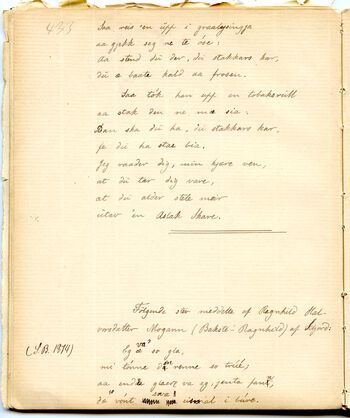 Saa reis 'en upp i graalysingja
aa gjekk seg ne te óse:
Aa stend du der, du stakkars kar,
du æ baate kald aa frosen.
Saa tók han upp en tobaksrull
aa stak den ne mæ sia:
Dan ska du ha, du stakkars kar,
fe du ha stae bia.
Jeg raader dig, min kjære ven,
at du tar dig vare,
at du alder stele meir
utav 'en Aslak Skare.
Følgende stev meddelte af Ragnhild Hal-
vorsdatter Mogann (Bakste-Ragnhild) af Mjondi:
(S.B. 1874)
Eg va so gla,
mi tonne renne so trill;
aa endte giaere va eg,
da vont i buve.